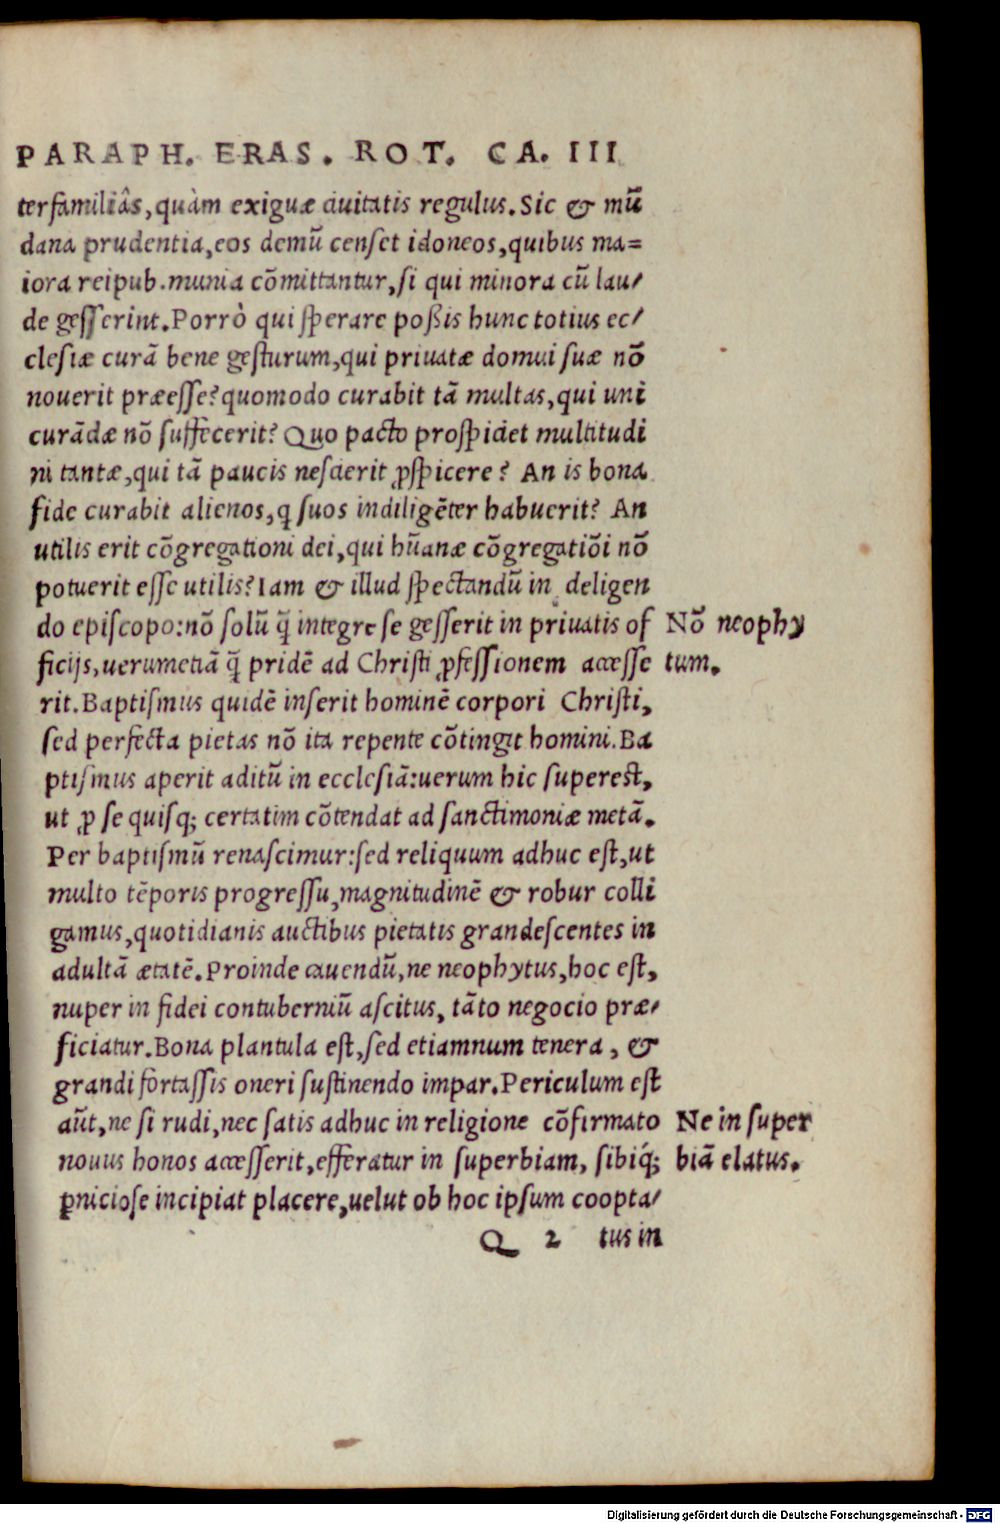 PARAPH. ERAS. ROT. CA. III
terfamiliâs, quàm exiguæ ciuitatis regulus. Sic & mũ
dana prudentia, eos demũ censet idoneos, quibus ma=
iora reipub. munia cõmittantur, si qui minora cũ lau/
de gesserint. Porrò qui sperare poßis hunc totius ec/
clesiæ curã bene gesturum, qui priuatæ domui suæ nõ
nouerit præesse? quomodo curabit tã multas, qui uni
curãdæ nõ suffecerit? Quo pacto prospiciet multitudi
ni tantæ, qui tã paucis nescierit ꝓspicere? An is bona
fide curabit alienos, q suos indiligẽter habuerit? An
utilis erit cõgregationi dei, qui hũanæ cõgregatiõi nõ
potuerit esse utilis? Iam & illud spectandũ in deligen
do episcopo: nõ solũ q̃ integre se gesserit in priuatis of
Nõ neophy
ficijs, uerumetiã q̃ pridẽ ad Christi ꝓfessionem accesse
tum.
rit. Baptismus quidẽ inserit hominẽ corpori Christi,
sed perfecta pietas nõ ita repente cõtingit homini. Ba
ptismus aperit aditũ in ecclesiã: uerum hic superest,
ut ꝓ se quisq; certatim cõtendat ad sanctimoniæ metã.
Per baptismũ renascimur: sed reliquum adhuc est, ut
multo tẽporis progressu, magnitudinẽ & robur colli
gamus, quotidianis auctibus pietatis grandescentes in
adultã ætatẽ. Proinde cauendũ, ne neophytus, hoc est,
nuper in fidei contuberniũ ascitus, tãto negocio præ/
ficiatur. Bona plantula est, sed etiamnum tenera, &
grandi fortassis oneri sustinendo impar. Periculum est
aũt, ne si rudi, nec satis adhuc in religione cõfirmato
Ne in super
nouus honos accesserit, efferatur in superbiam, sibiq́;
biã elatus.
ꝑniciose incipiat placere, uelut ob hoc ipsum coopta/
Q 2 tus in
Digitalisierung gefördert durch die Deutsche Forschungsgemeinschaft - DFG